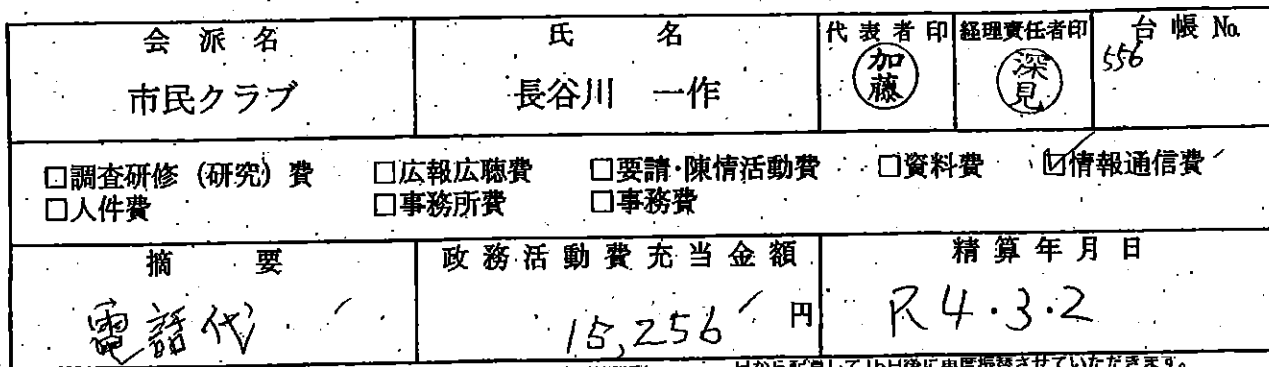 会派名 氏名 代表者印 経理責任者印 台帳No.
市民クラブ 長谷川 一作 加藤 深見 556
□調査研修(研究)費 □広報広聴費 □要請・陳情活動費 □資料費 ☑情報通信費
□人件費 □事務所費 □事務費
摘要 政務活動費充当金額 精算年月日
電話代 15,256円 R4.3.2
して15日後に再度振替させていただきます。